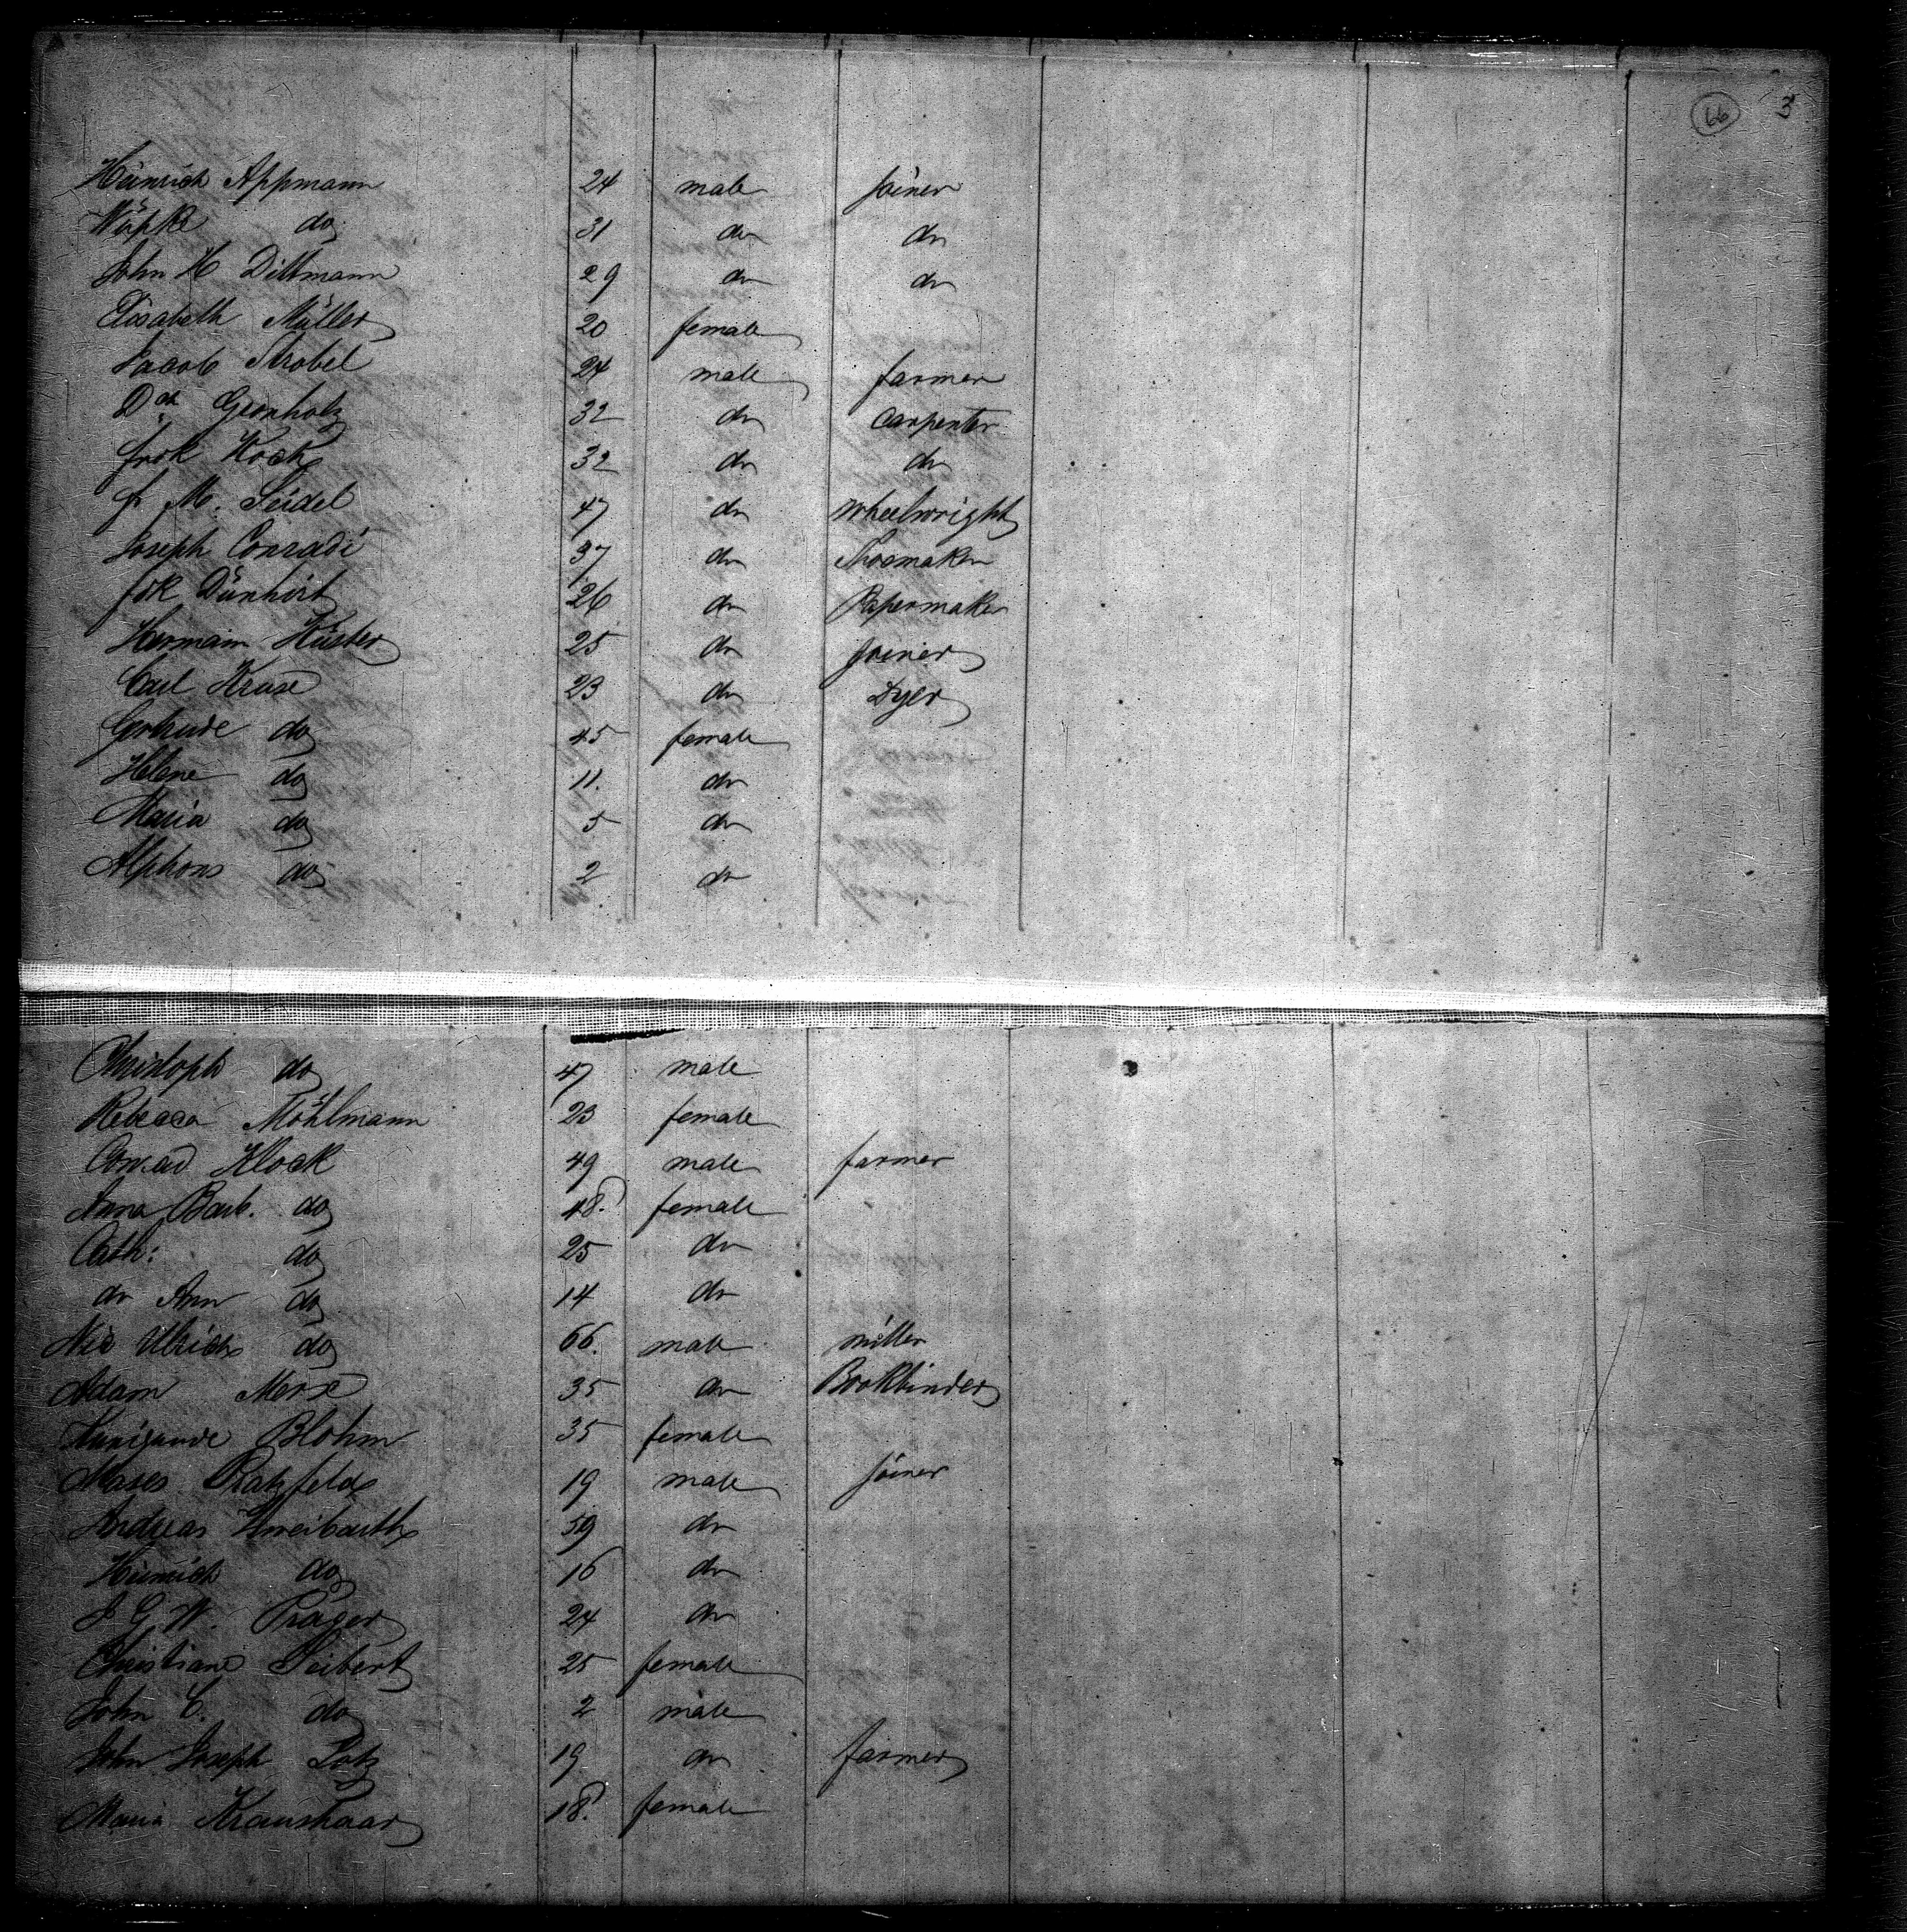 66 3
Heinrich Appmann 24 male joiner
Wüpke do 31 do do
John H Dittmann 29 do do
Elisabeth Müller 20 female
Jacob Strobel 24 male farmer
Gronholz 32 do carpenter
Koch 32 do do
M. Seidel 47 do wheelwright
Joseph Conradi 37 do Shoemaker
Dünhirt 26 do Papermaker
Hermann Küster 25 do joiner
Carl Kruse 23 do Dyer
Gertrude do 45 female
Helene do 11. do
Maria do 5 do
Alphons do 2 do
Christoph do 47 male
Rebecca Möhlmann 23 female
Conrad Klock 49 male farmer
Anna Barb. do 48. female
Cath: do 25 do
do Ann do 14 do
Nic Ulrich do 66. male miller
Adam Merx 35 do Bookbinder
Kunigunde Blohm 35 female
Moses 19 male joiner
Andreas 59 do
Heinrich do 16 do
J G W. Präger 24 do
Christiane Seibert 25 female
John C. do 2 male
John Joseph Lotz 19 do farmer
Maria Kraushaar 18. female